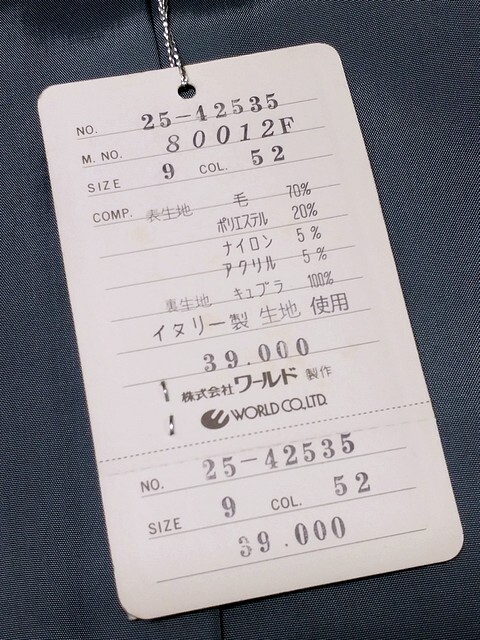 NO. 25-42535
M. NO. 80012F
SIZE 9 COL. 52
COMP. 表生地 毛 70%
ポリエステル 20%
ナイロン 5%
アクリル 5%
裏生地 キュプラ 100%
イタリー製 生地 使用
39.000
株式会社ワールド 製作
WORLD CO., LTD.
NO. 25-42535
SIZE 9 COL. 52
39.000